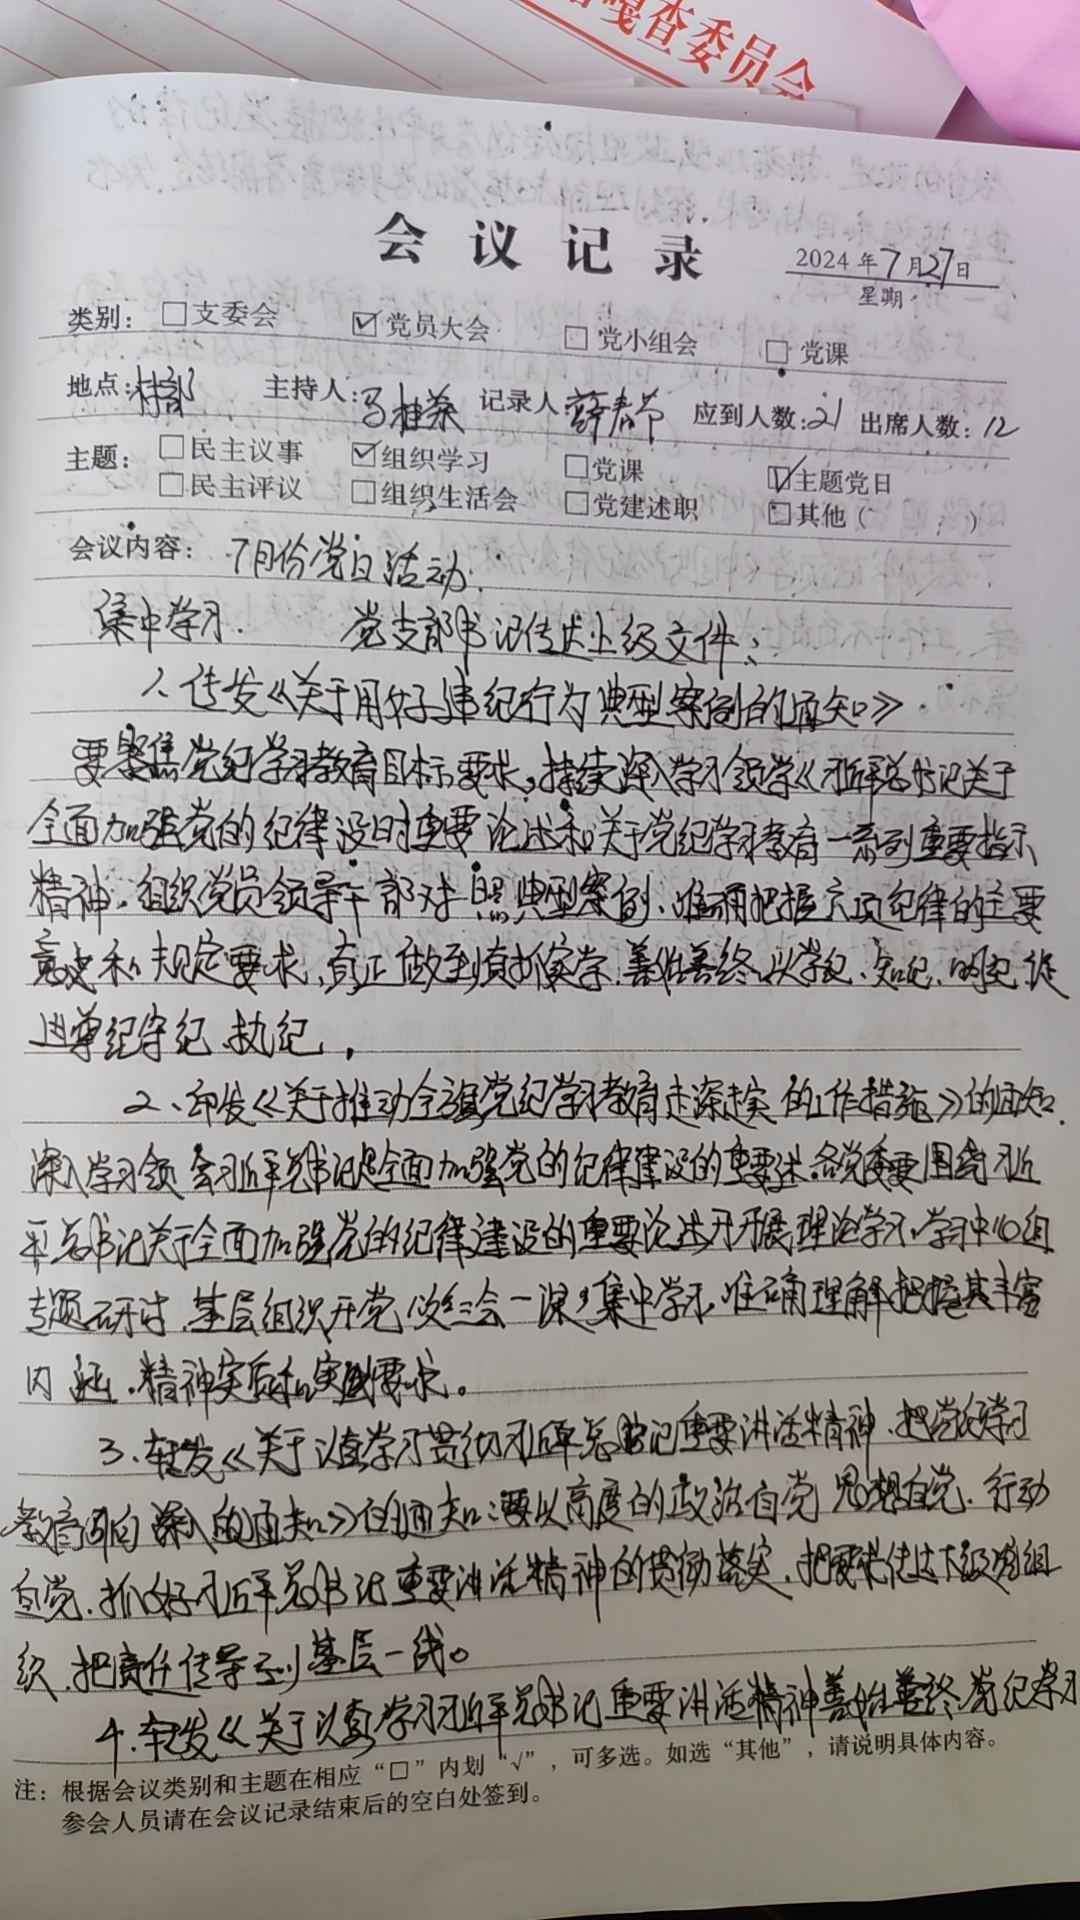 嘎查委员会
会议记录
2024年7月27日
星期
类别：□支委会 ☑党员大会 □党小组会 □党课
地点：村部 主持人：马桂荣 记录人 薛春节 应到人数：21 出席人数：12
主题：□民主议事 ☑组织学习 □党课 ☑主题党日
□民主评议 □组织生活会 □党建述职 □其他（ ）
会议内容：7月份党日活动.
集中学习. 党支部书记传达上级文件：
1、传发《关于用好违纪行为典型案例的通知》
要聚焦党纪学习教育目标要求，持续深入学习领学《习近平总书记关于
全面加强党的纪律设时重要论述和关于党纪学习教育一系列重要指示
精神.组织党员领导干部对照典型案例、准确把握六项纪律的主要
和规定要求，真正做到真抓实学.善始善终.以学纪、知纪、明纪.促
进尊纪守纪、执纪，
2、印发《关于推动全旗党纪学习教育走深走实的工作措施》的通知.
深入学习领会习近平总书记是全面加强党的纪律建设的重要述.各党委要围绕习近
平总书记关于全面加强党的纪律建设的重要论述开开展理论学习.学习中心组
专题研讨.基层组织开党三会一课集中学习.准确理解把握其丰富
内涵.精神实质和实践要求。
3、转发《关于认真学习贯彻习近平总书记重要讲话精神.把党纪学习
教育引向深入的通知》的通知：要以高度的政治自党思想自党.行动
自党.抓好习近平总书记重要讲话精神的贯彻落实.把要求传达下级党组
织.把责任传导到基层一线。
4.转发《关于认真学习习近平总书记重要讲话精神善始善终党纪学习
注：根据会议类别和主题在相应“□”内划“√”，可多选。如选“其他”，请说明具体内容。
参会人员请在会议记录结束后的空白处签到。